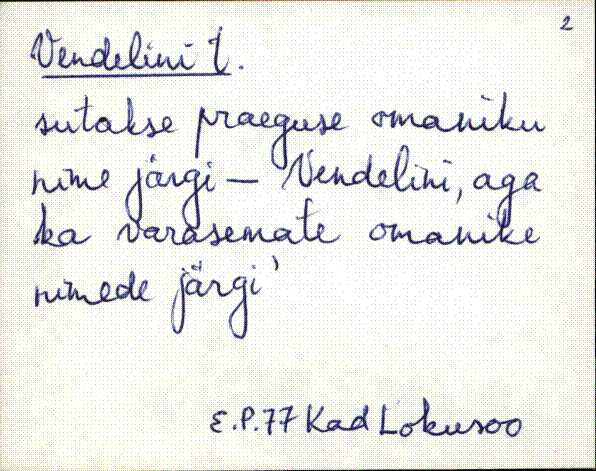 2
Vendelini t.
sutakse praeguse omaniku
nime järgi — Vendelini, aga
ka varasemate omanike
nimede järgi'
E.P.77 Kad Lokusoo